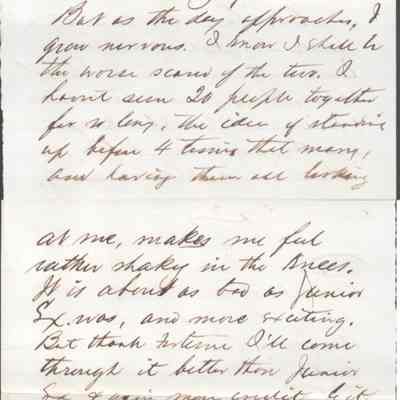 But as the day approaches, I
grow nervous. I know I shall be
the worse scared of the two. I
havn't seen 20 people together
for so long, the idea of standing
up before 4 times that many,
and having them all looking
at me, makes me feel
rather shaky in the knees.
It is about as bad as Junior
Ex. was, and more exciting.
But thank fortune I'll come
through it better than Junior
Ex & gain more credit